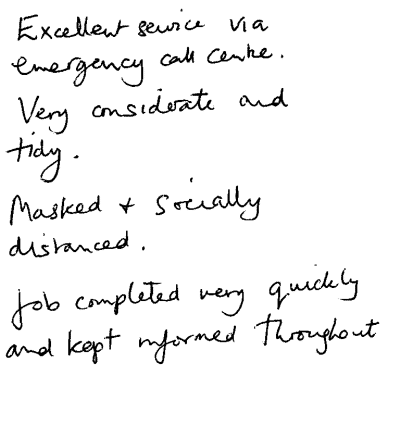 Excellent service via
emergency call centre.
Very considerate and
tidy.
Masked + Socially
distanced.
Job completed very quickly
and kept informed throughout